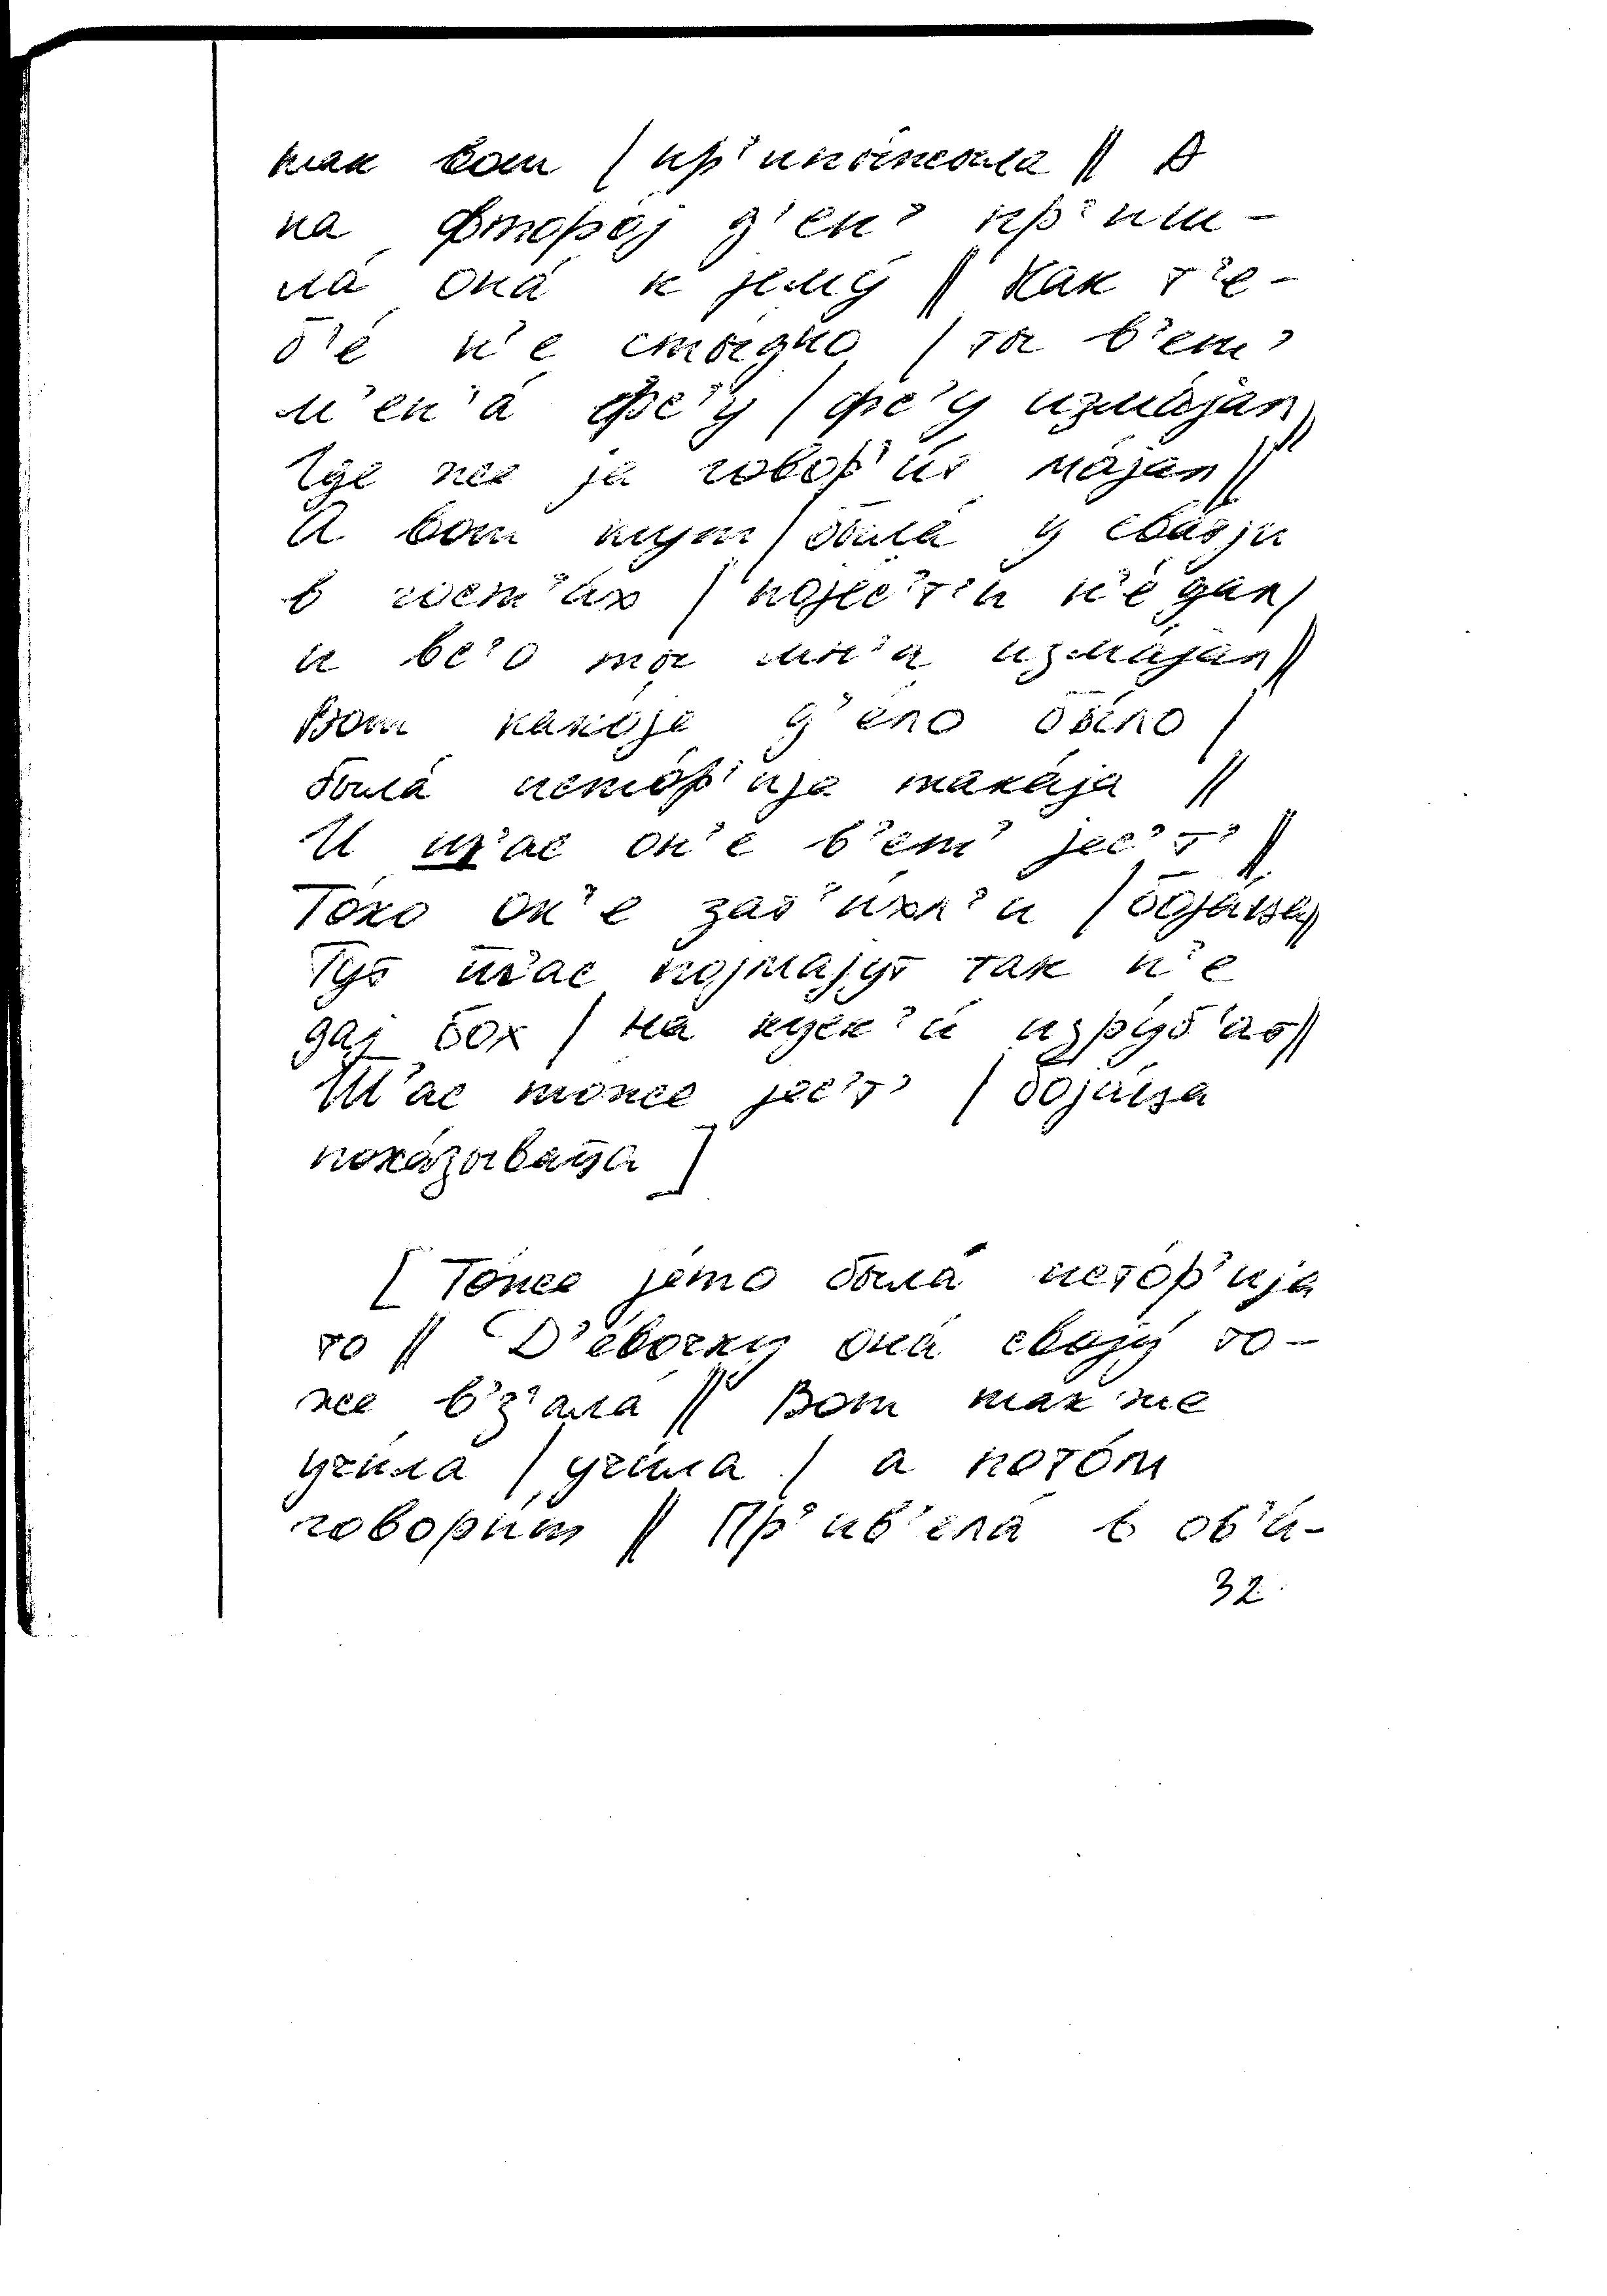 так вот / пр'ипы́жыла // А
на фторо́j д'ен' пр'иш-
ла́ она́ к jему́ // Как т'е-
б'е́ н'е сты́дно / ты в'ет'
м'ен'а́ фс'у / фс'у изма́jал //
Где же jа говор'и́т ма́jал //
А вот тут / была́ у сва́тjи
в гост'а́х / поjес'т'и н'е́ дал /
и вс'о ты мн'а изма́jал //
Вот како́jе д'е́ло бы́ло /
была́ исто́р'иjа така́jа //
И ш'ас он'е в'ет' jес'т' //
То́ко он'е зат'и́хл'и / боjа́ца //
Тут ш'ас поjмаjут так н'е
даj бох / на куск'и́ изру́б'ат //
Ш'ас тоже jес'т' / боjа́ца
пока́зываца ]
[ То́же jе́то была́ исто́р'иjа
то // Д'е́вочку она́ своjу́ то-
же в'з'ала́ // Вот так же
учи́ла / учи́ла / а пото́м
говори́т // Пр'ив'ела́ в ов'и́-
32